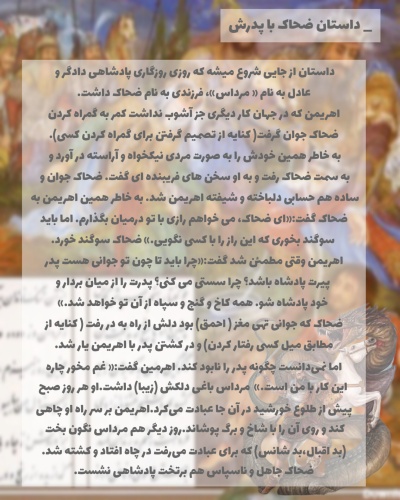 _ داستان ضحاک با پدرش
داستان از جایی شروع میشه که روزی روزگاری پادشاهی دادگر و
عادل به نام « مرداس»، فرزندی به نام ضحاک داشت.
اهریمن که در جهان کار دیگری جز آشوب نداشت کمر به گمراه کردن
ضحاک جوان گرفت( کنایه از تصمیم گرفتن برای گمراه کردن کسی).
به خاطر همین خودش را به صورت مردی نیکخواه و آراسته در آورد و
به سمت ضحاک رفت و به او سخن های فریبنده ای گفت. ضحاک جوان و
ساده هم حسابی دلباخته و شیفته اهریمن شد. به خاطر همین اهریمن به
ضحاک گفت:«ای ضحاک، می خواهم رازی با تو درمیان بگذارم. اما باید
سوگند بخوری که این راز را با کسی نگویی.» ضحاک سوگند خورد.
اهریمن وقتی مطمئن شد گفت:«چرا باید تا چون تو جوانی هست پدر
پیرت پادشاه باشد؟ چرا سستی می کنی؟ پدرت را از میان بردار و
خود پادشاه شو. همه کاخ و گنج و سپاه از آن تو خواهد شد.»
ضحاک که جوانی تهی مغز ( احمق) بود دلش از راه به در رفت ( کنایه از
مطابق میل کسی رفتار کردن) و در کشتن پدر با اهریمن یار شد.
اما نمی‌دانست چگونه پدر را نابود کند. اهرمین گفت:« غم مخور چاره
این کار با من است.» مرداس باغی دلکش (زیبا) داشت.او هر روز صبح
پیش از طلوع خورشید در آن جا عبادت می‌کرد.اهریمن بر سر راه او چاهی
کند و روی آن را با شاخ و برگ پوشاند.روز دیگر هم مرداس نگون بخت
(بد اقبال،بد شانس) که برای عبادت می‌رفت در چاه افتاد و کشته شد.
ضحاک جاهل و ناسپاس هم برتخت پادشاهی نشست.